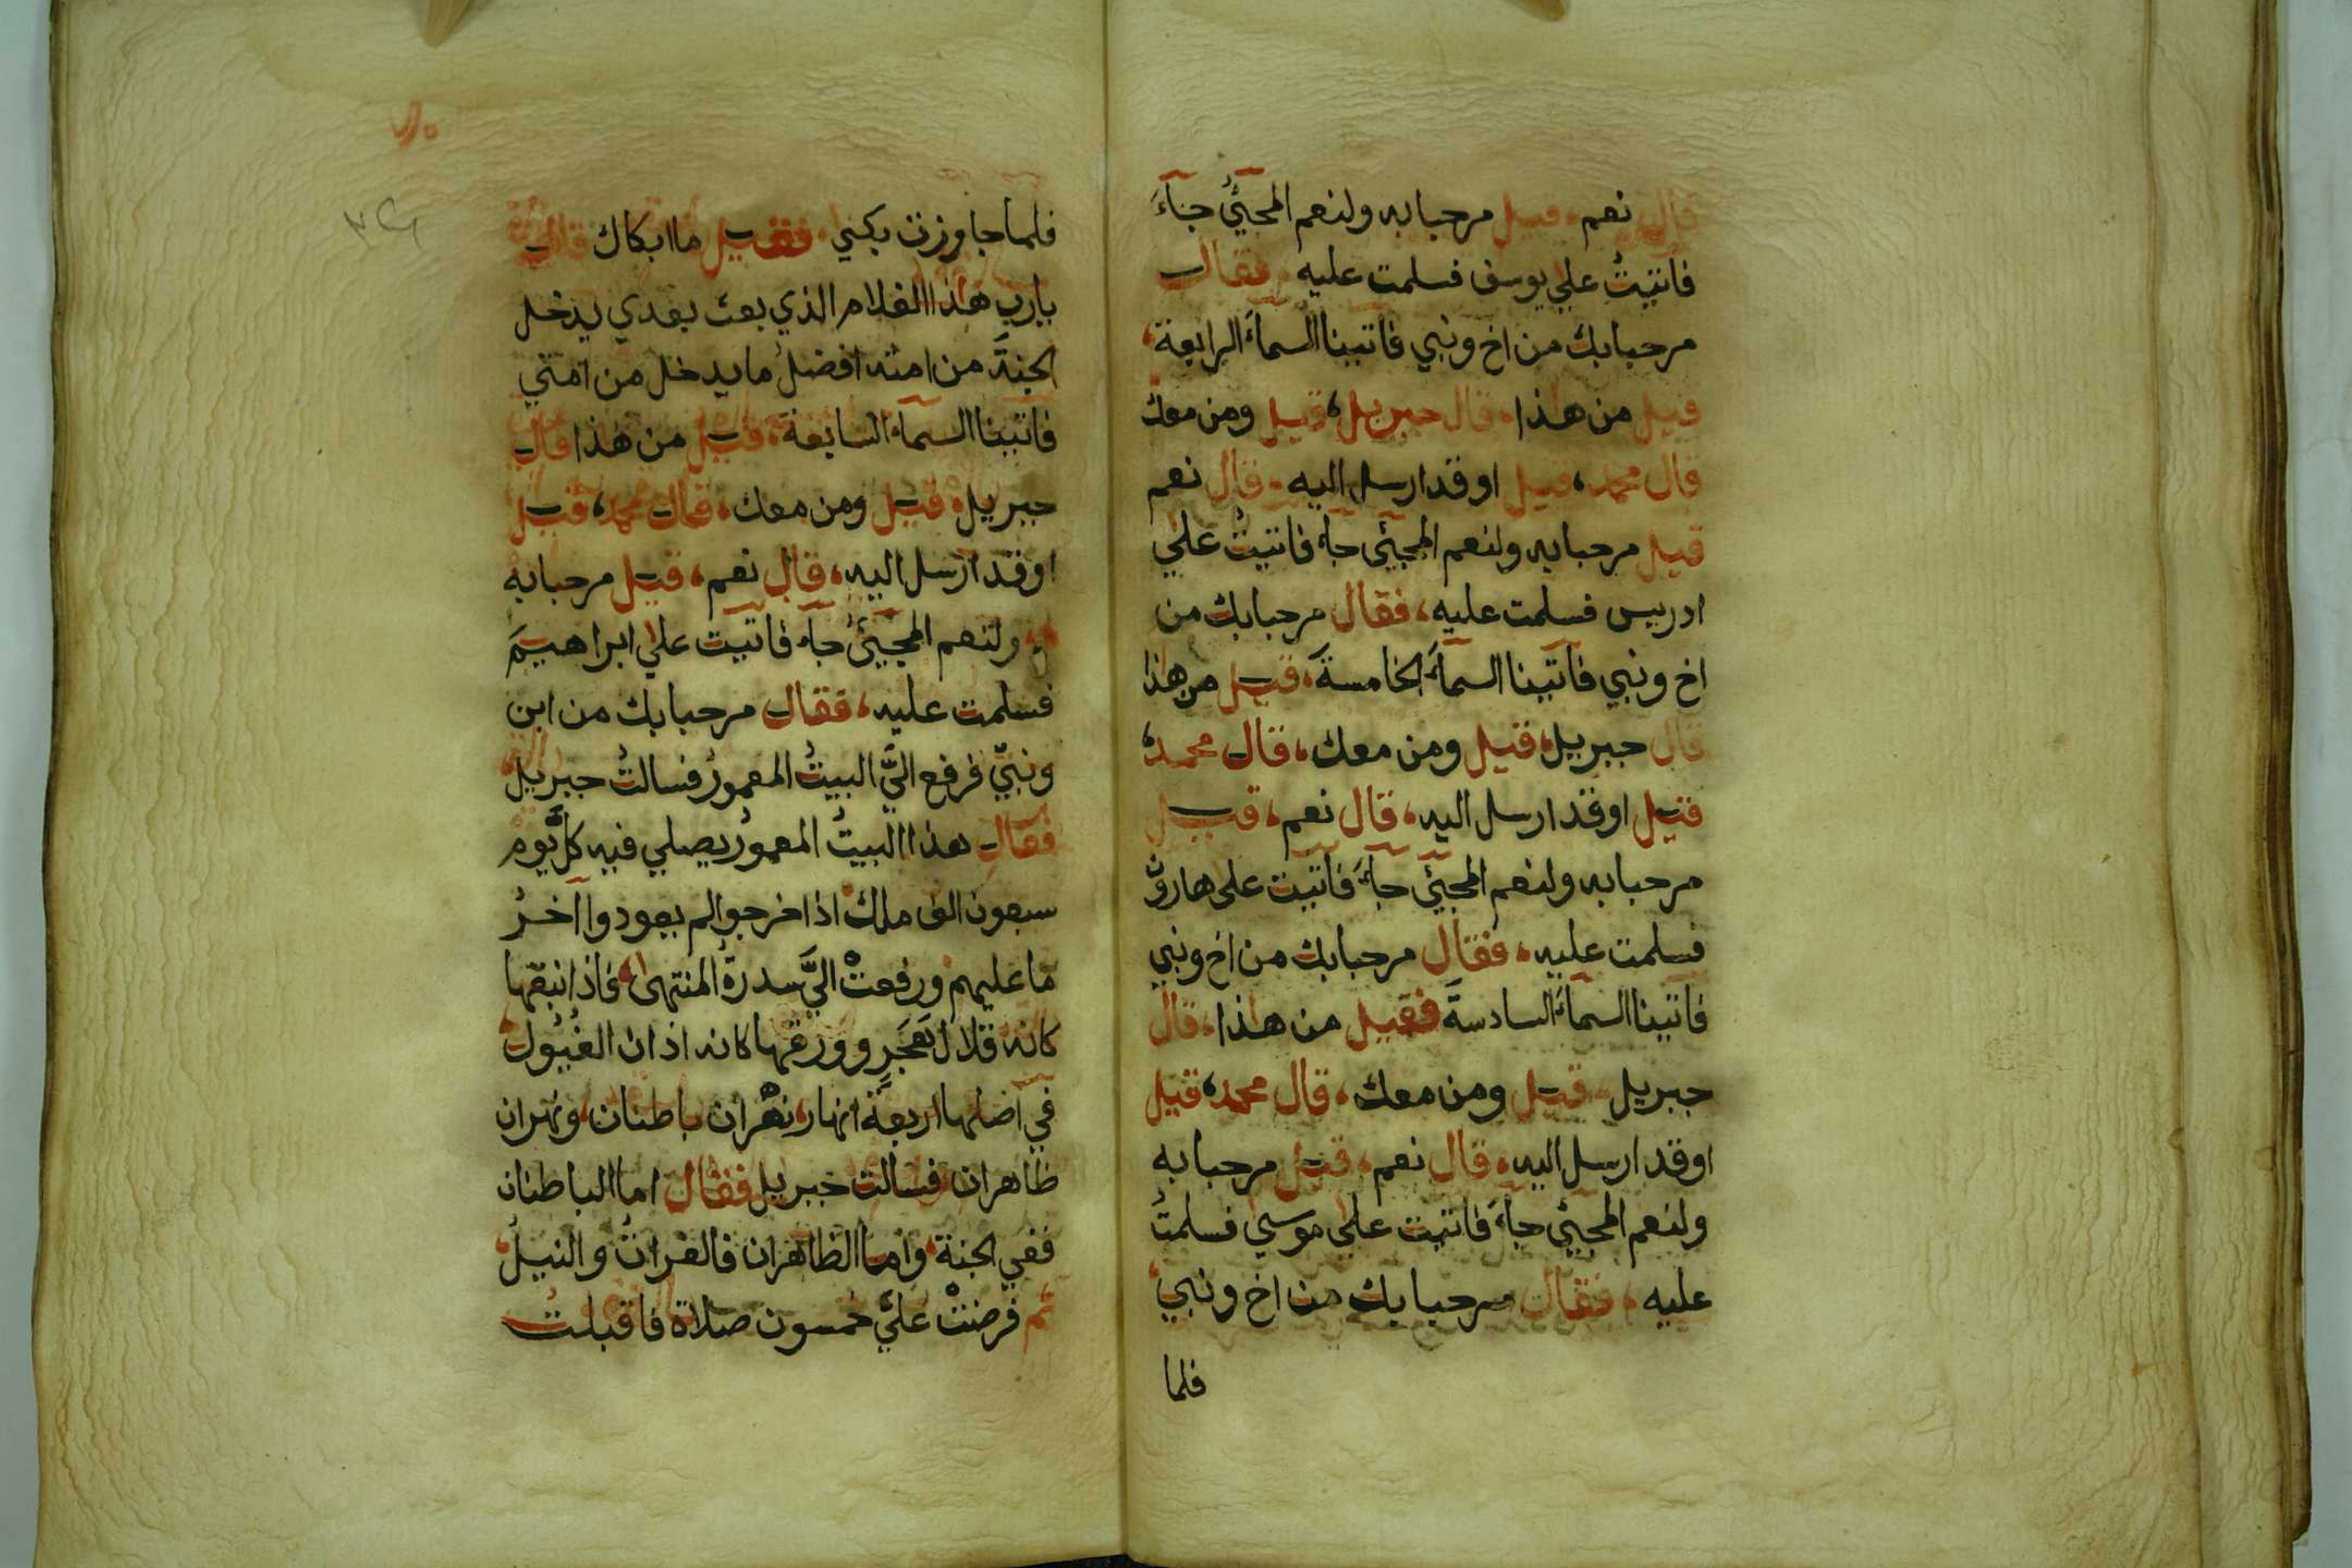 قال نعم قيل مرحبا به ولنعم المجيئ جاء
فاتيتُ علي يوسف فسلمت عليه فقال
مرحبا بك من اخ ونبي فاتينا السماءَ الرابعة
قيل من هذا قال جبريل قيل ومن معك
قال محمد قيل اوقد ارسل اليه قال نعم
قيل مرحبا به ولنعم المجيئ جاء فاتيتُ علي
ادريس فسلمت عليه فقال مرحبا بك من
اخ ونبي فاتينا السماءَ الخامسةَ قيل من هذا
قال جبريل قيل ومن معك قال محمد
قيل اوقد ارسل اليه قال نعم قيل
مرحبا به ولنعم المجيئ جاءَ فاتيت على هارون
فسلمت عليه فقال مرحبا بك من اخ ونبي
فاتينا السماءَ السادسةَ فقيل من هذا قال
جبريل قيل ومن معك قال محمد قيل
اوقد ارسل اليه قال نعم قيل مرحبا به
ولنعم المجيئ جاءَ فاتيت علي موسي فسلمتُ
عليه فقال مرحبا بك من اخ ونبي
فلما
فلما جاوزت بكي فقيل ما ابكاك قال
يارب هذا الغلام الذي بعث بعدي يدخل
الجنةَ من امته افضلُ ما يدخل من امتي
فاتينا السماءَ السابعة قيل من هذا قال
جبريل قيل ومن معك قال محمد قيل
اوقد ارسل اليه قال نعم قيل مرحبا به
ولنعم المجيئُ جاء فاتيت علي ابراهيمَ
فسلمت عليه فقال مرحبا بك من ابن
ونبيّ فرفع اليَّ البيتُ المعمورُ فسالتُ جبريل
فقال هذا البيتُ المعمورُ يصلي فيه كلَّ يوم
سبعون الف ملك اذا خرجوا لم يعودوا آخرُ
ما عليهم ورفعتْ اليَّ سدرةُ المنتهى فاذا نبقها
كانه قلال هَجَرٍ وورقها كانه اذان الفُيُول
في اصلها اربعة انهار نهران باطنان ونهران
ظاهران فسالت جبريل فقال اما الباطنان
ففي الجنة واما الظاهران فالفراتُ والنيلُ
ثم فرضتْ عليَّ خمسون صلاة فاقبلت